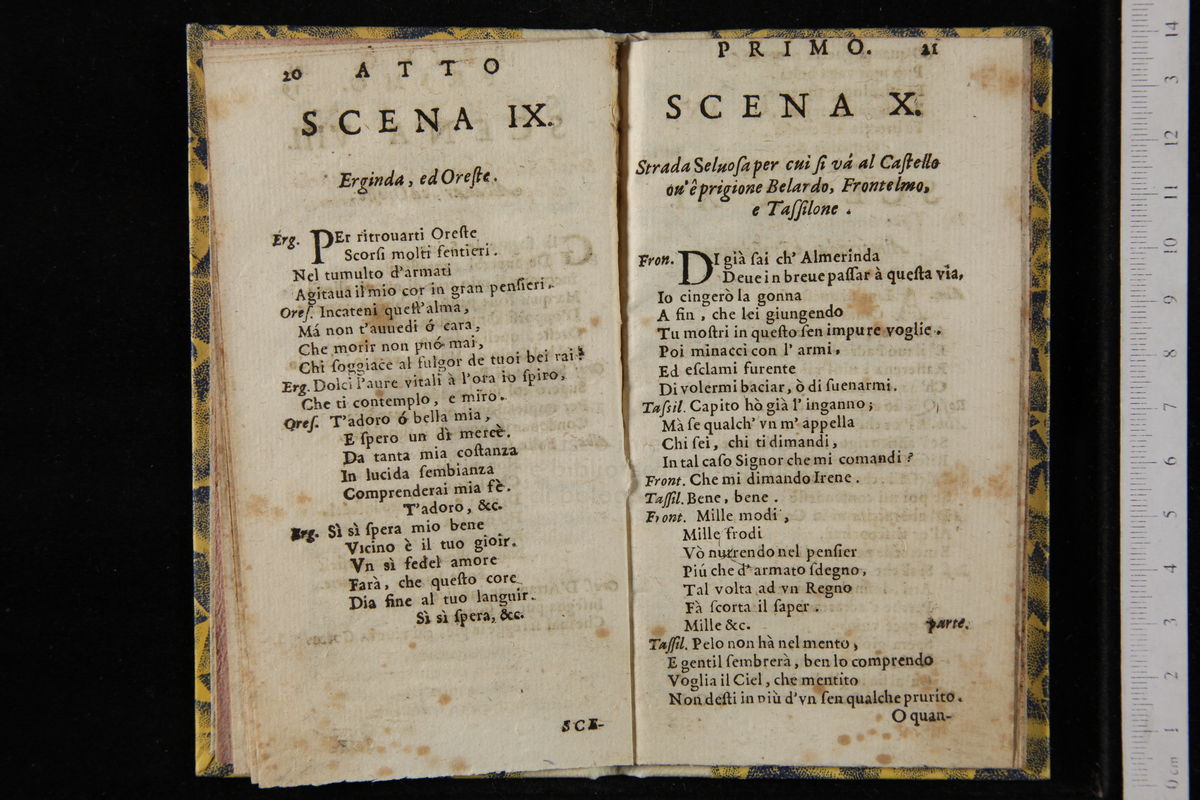 20 ATTO
SCENA IX.
Erginda, ed Oreſte.
Erg. PEr ritrouarti Oreſte
Scorſi molti ſentieri.
Nel tumulto d'armati
Agitaua il mio cor in gran penſieri.
Oreſ. Incateni queſt'alma,
Má non t'auuedi ó cara,
Che morir non puó mai,
Chi ſoggiace al fulgor de tuoi bei rai?
Erg. Dolci l'aure vitali à l'ora io ſpiro,
Che ti contemplo, e miro.
Oreſ. T'adoro ó bella mia,
E ſpero un dì mercè.
Da tanta mia coſtanza
In lucida ſembianza
Comprenderai mia fè.
T'adoro, &c.
Erg. Sì sì ſpera mio bene
Vicino è il tuo gioir.
Vn sì fedel amore
Farà, che queſto core
Dia fine al tuo languir.
Sì sì ſpera, &c.
SCE-
PRIMO. 21
SCENA X.
Strada Seluoſa per cui ſi vá al Caſtello
ou'è prigione Belardo, Frontelmo,
e Taſſilone.
Fron. DI già ſai ch' Almerinda
Deue in breue paſſar à queſta via,
Io cingerò la gonna
A fin, che lei giungendo
Tu moſtri in queſto ſen impure voglie.
Poi minacci con l' armi,
Ed eſclami furente
Di volermi baciar, ò di ſuenarmi.
Taſsil. Capito hò già l' inganno;
Mà ſe qualch' vn m' appella
Chi ſei, chi ti dimandi,
In tal caſo Signor che mi comandi?
Front. Che mi dimando Irene.
Taſſil. Bene, bene.
Front. Mille modi,
Mille frodi
Vò nutrendo nel penſier
Piú che d' armato ſdegno,
Tal volta ad vn Regno
Fà ſcorta il ſaper.
Mille &c. parte.
Taſſil. Pelo non hà nel mento,
E gentil ſembrerà, ben lo comprendo
Voglia il Ciel, che mentito
Non deſti in più d'vn ſen qualche prurito.
O quan-
14
3
12
11
10
9
8
7
6
5
4
3
2
1
0 cm